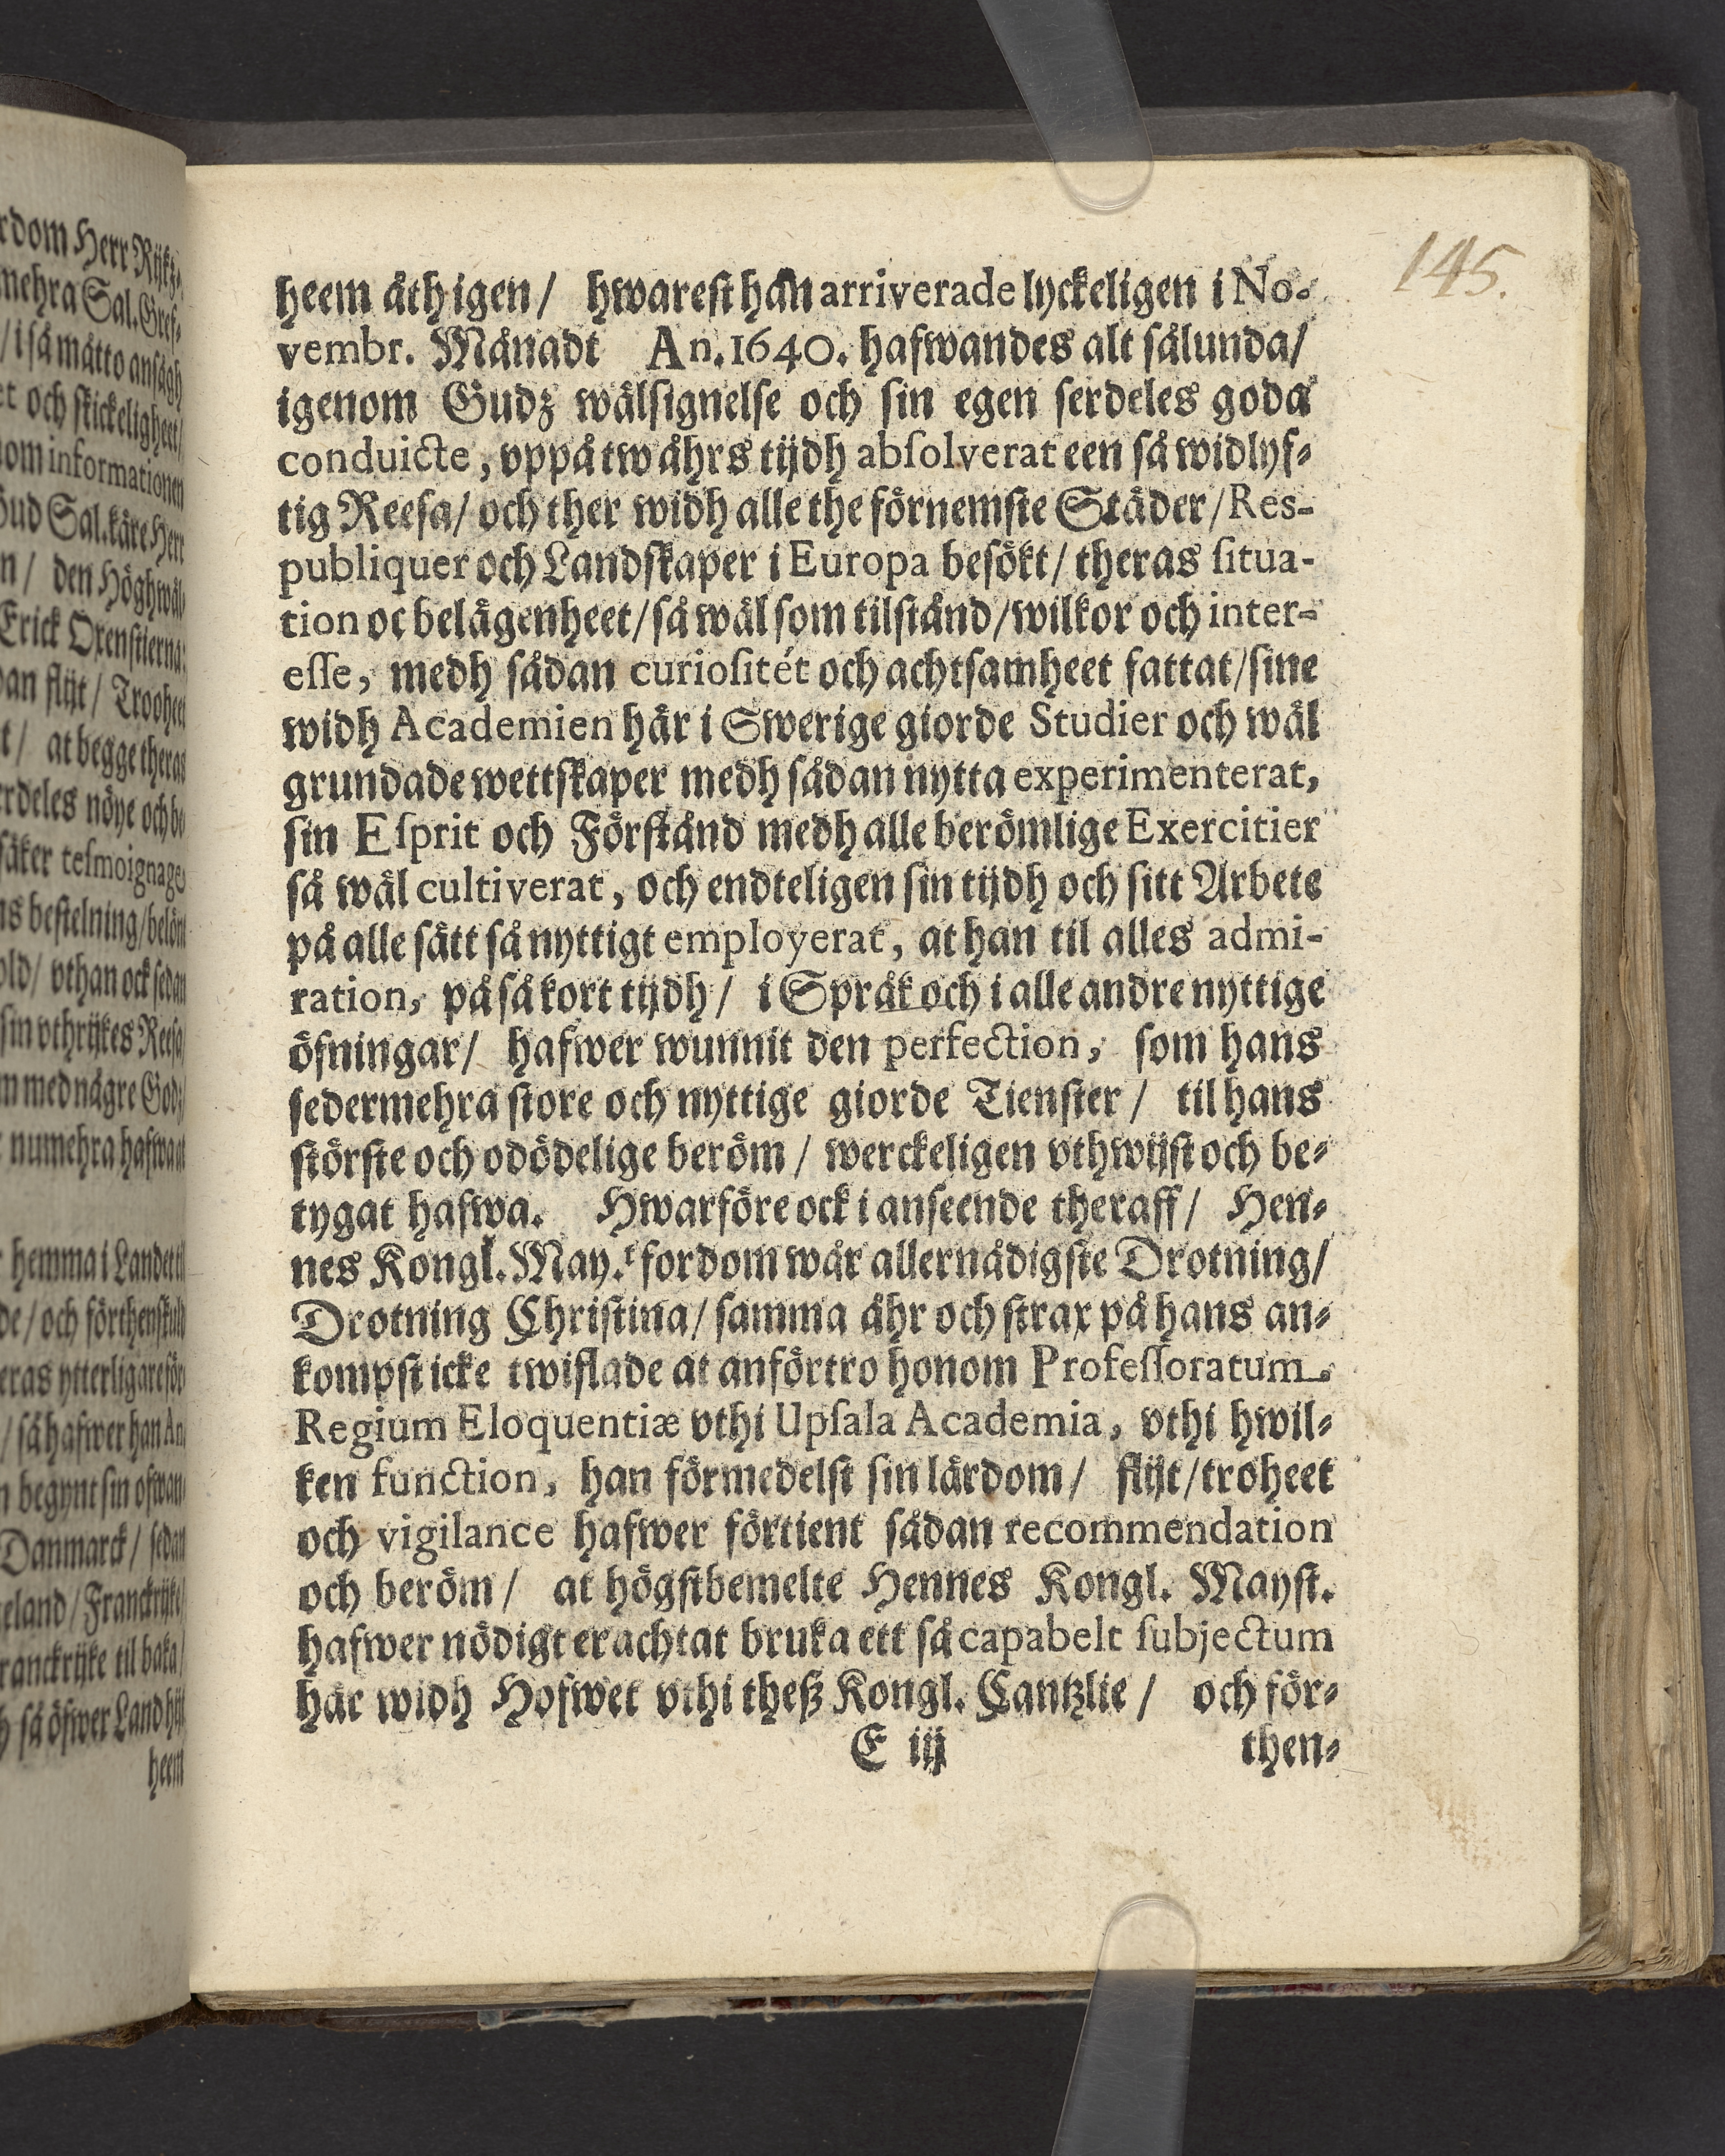 145.
heem åth igen / hwarest han arriverade lyckeligen i No-
vembr. Månadt An. 1640. hafwandes alt sålunda /
igenom Gudz wälsignelse och sin egen serdeles goda
conduicte, vppå tw åhrs tijdh absolverat een så widlyf-
tig Reesa / och ther widh alle the förnemste Städer / Res-
publiquer och Landskaper i Europa besökt / theras situa-
tion oc belägenheet / så wäl som tilstånd / wilkor och inter-
esse, medh sådan curiositét och achtsamheet fattat / sine
widh Academien här i Swerige giorde Studier och wäl
grundade wettskaper medh sådan nytta experimenterat,
sin Esprit och Förstånd medh alle berömlige Exercitier
så wäl cultiverat, och endteligen sin tijdh och sitt Arbete
på alle sätt så nyttigt employerat, at han til alles admi-
ration, på så kort tijdh / i Språk och i alle andre nyttige
öfningar / hafwer wunnit den perfection, som hans
sedermehra store och nyttige giorde Tienster / til hans
störste och odödelige beröm / werckeligen vthwijst och be-
tygat hafwa. Hwarföre ock i anseende theraff / Hen-
nes Kongl. May.t fordom wår allernådigste Drotning /
Drotning Christina / samma åhr och strax på hans an-
kompst icke twiflade at anförtro honom Professoratum
Regium Eloquentiæ vthi Upsala Academia, vthi hwil-
ken function, han förmedelst sin lärdom / flijt / troheet
och vigilance hafwer förtient sådan recommendation
och beröm / at högstbemelte Hennes Kongl. Mayst.
hafwer nödigt erachtat bruka ett så capabelt subjectum
här widh Hofwet vthi theß Kongl. Cantzlie / och för-
E iij then-